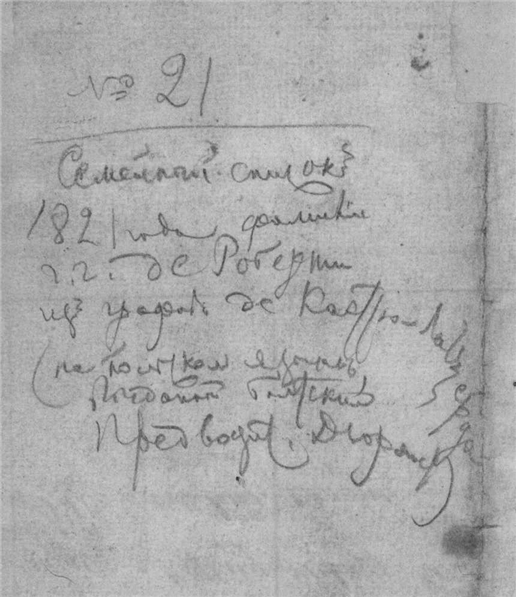 № 21
Семейный списокъ
1821 года фамилiи
г.г. де Роберти
изъ графовъ де Кастро-Лацерда
(на польском языкѣ
выданый
Предводит. Дворянс